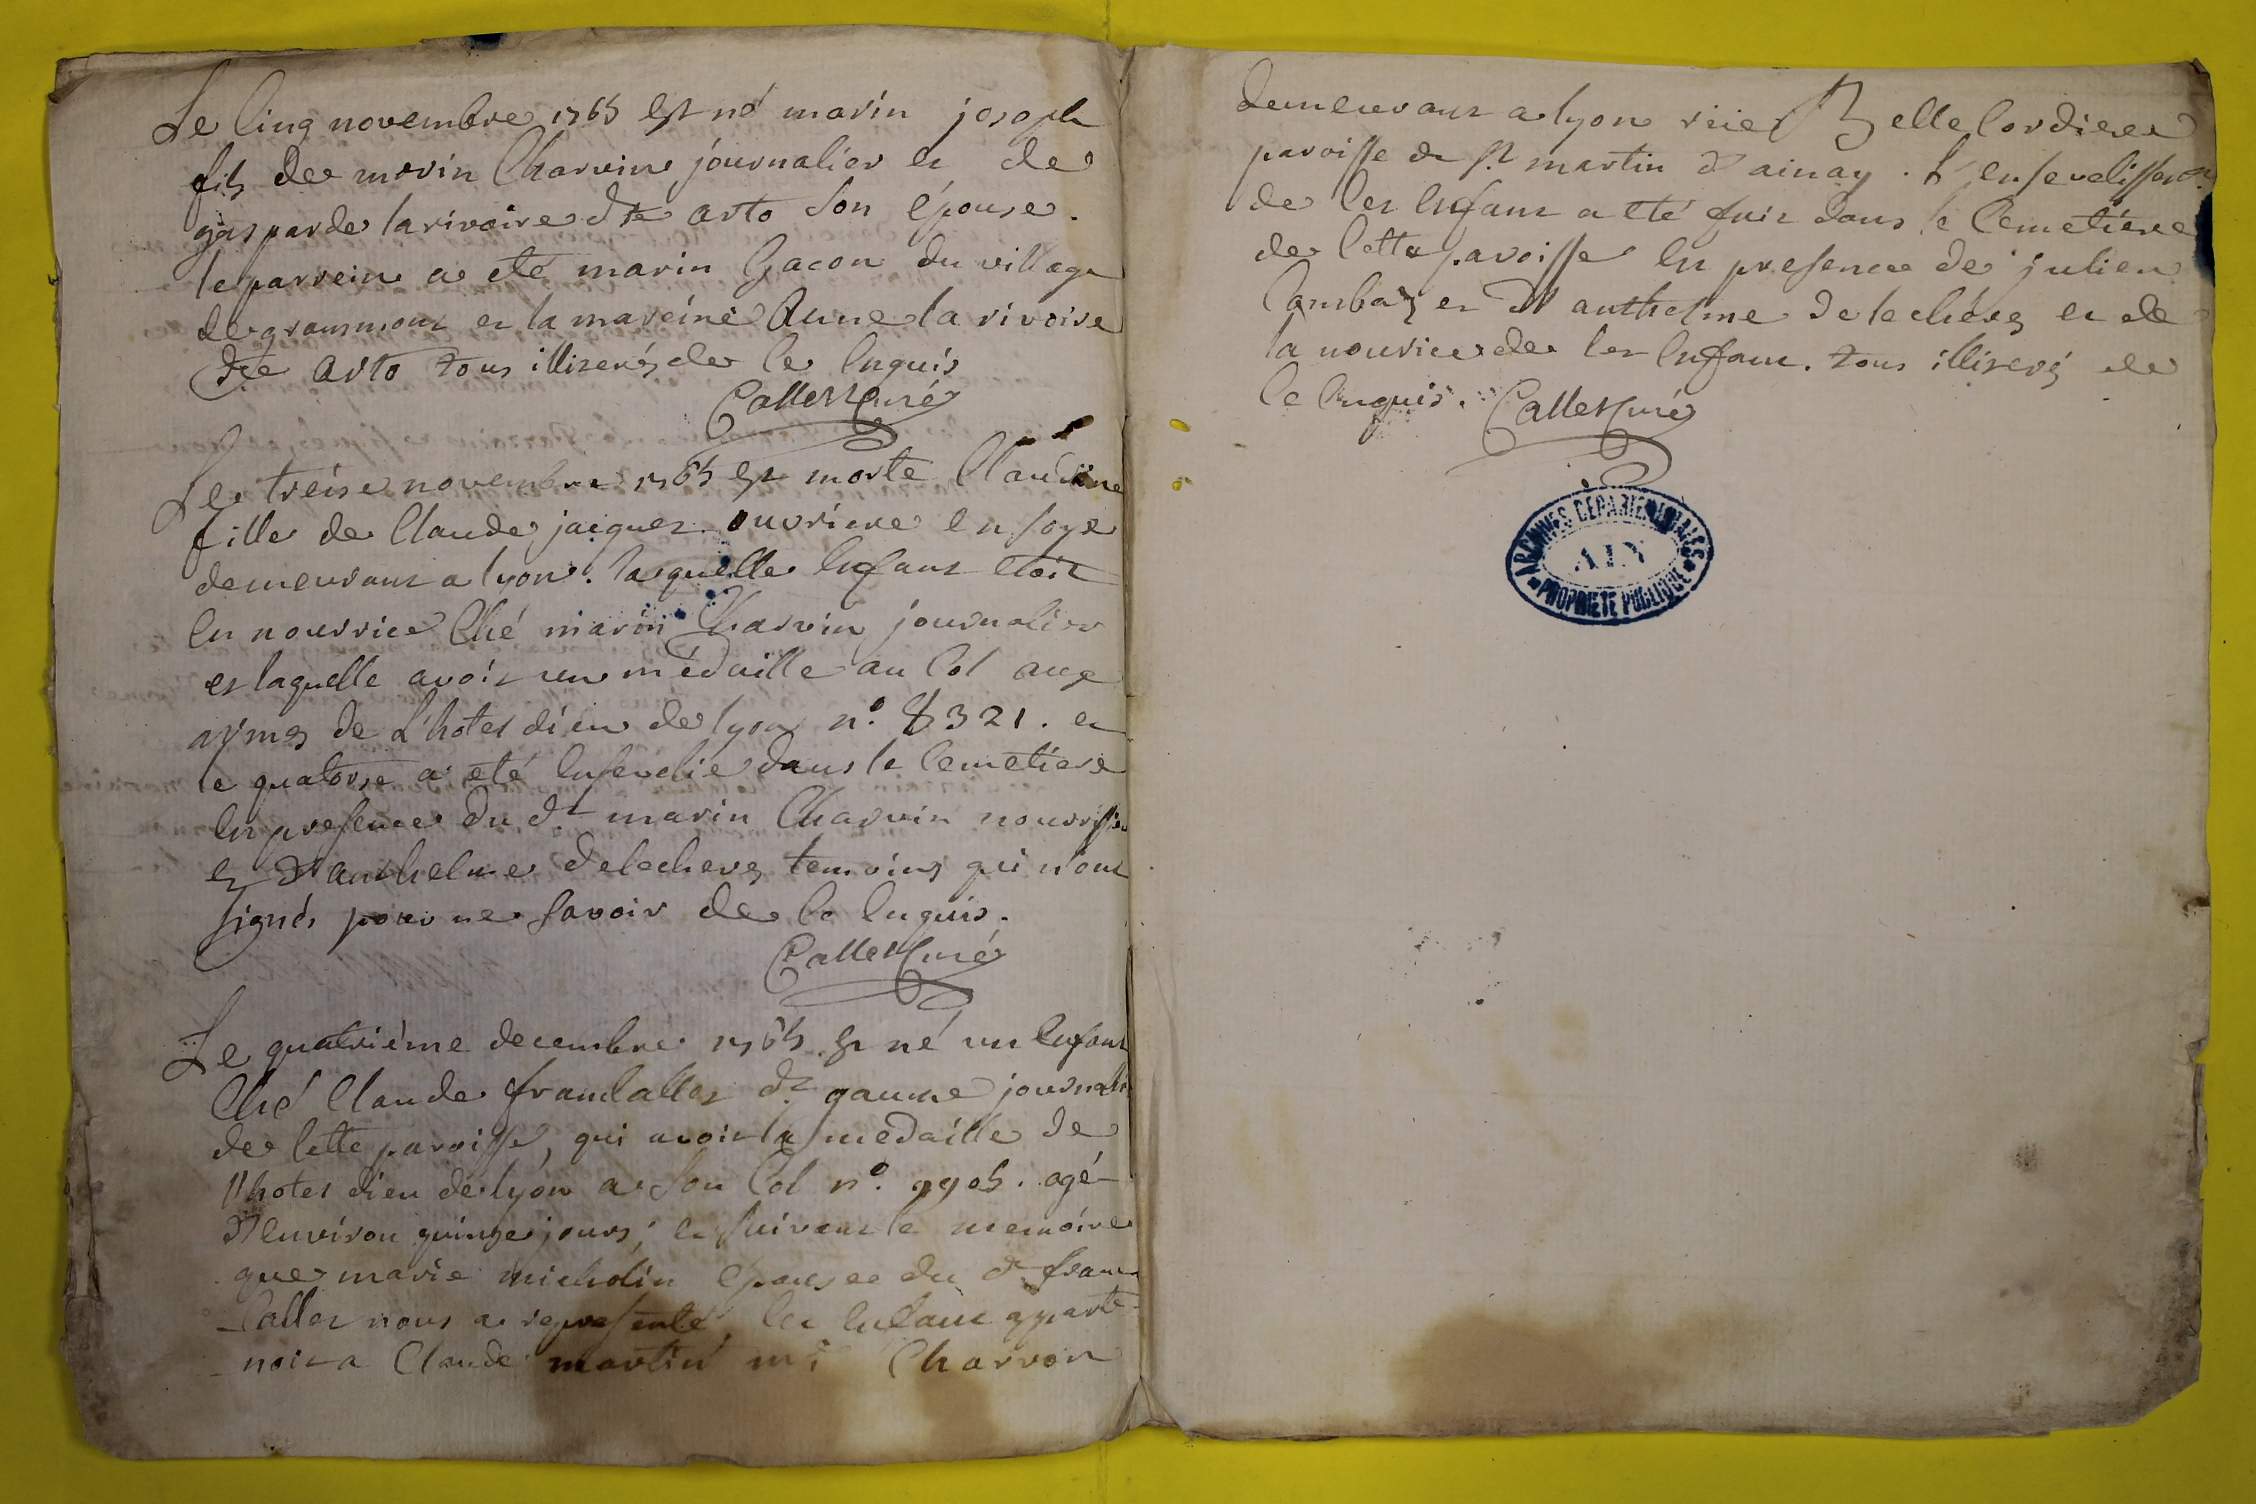 Le cinq novembre 1765 est né marin joseph
fils de marin Charvin journalier et de
gasparde la rivoire dte arto son épouse.
le parrein a eté marin Gacon du village
de grammont et la mareine Anne la rivoire
dte arto tous illiterés de ce enquis
Callet Curé
Le treise novembre 1765 est morte Claudine
fille de Claude jacquet ouvriere en soye
demeurant a lyon. laquelle enfant etoit
en nourrice Ché marin Charvin journalier
et laquelle avoit une médaille au Col aux
armes de L'hotel dieu de lyon n°. 8321. et
le quatorse a eté ensevelie dans le Cemetiere
en presence du dt marin Charvin nourrissier
et d'anthelme delecheres temoins qui n'ont
signés pour ne savoir de ce enquis.
Callet Curé
Le quatriéme decembre 1765 est né un enfant
Ché Claude francallet dt gaume journalier
de cette paroisse, qui avoit la medaille de
l'hotel dieu de lyon a son Col n°. 9905. agé
d'environ quinze jours; et suivant le memoire
que marie micholin epouse du dt fran-
-callet nous a representé, cet enfant apparte-
-noit a Claude martin mt Charron
demeurant a lyon rue Belle Cordiere
paroisse de St. martin d'ainay. L'ensevelissement
de cet enfant a eté fait dans le Cemetiére
de cette paroisse en presence de julien
Combaz et d'anthelme delechéres et de
la nourice de cet enfant. tous illiterés de
ce enquis. Callet Curé
ARCHIVES DEPARTEMENTALES
AIN
* PROPRIETE PUBLIQUE *